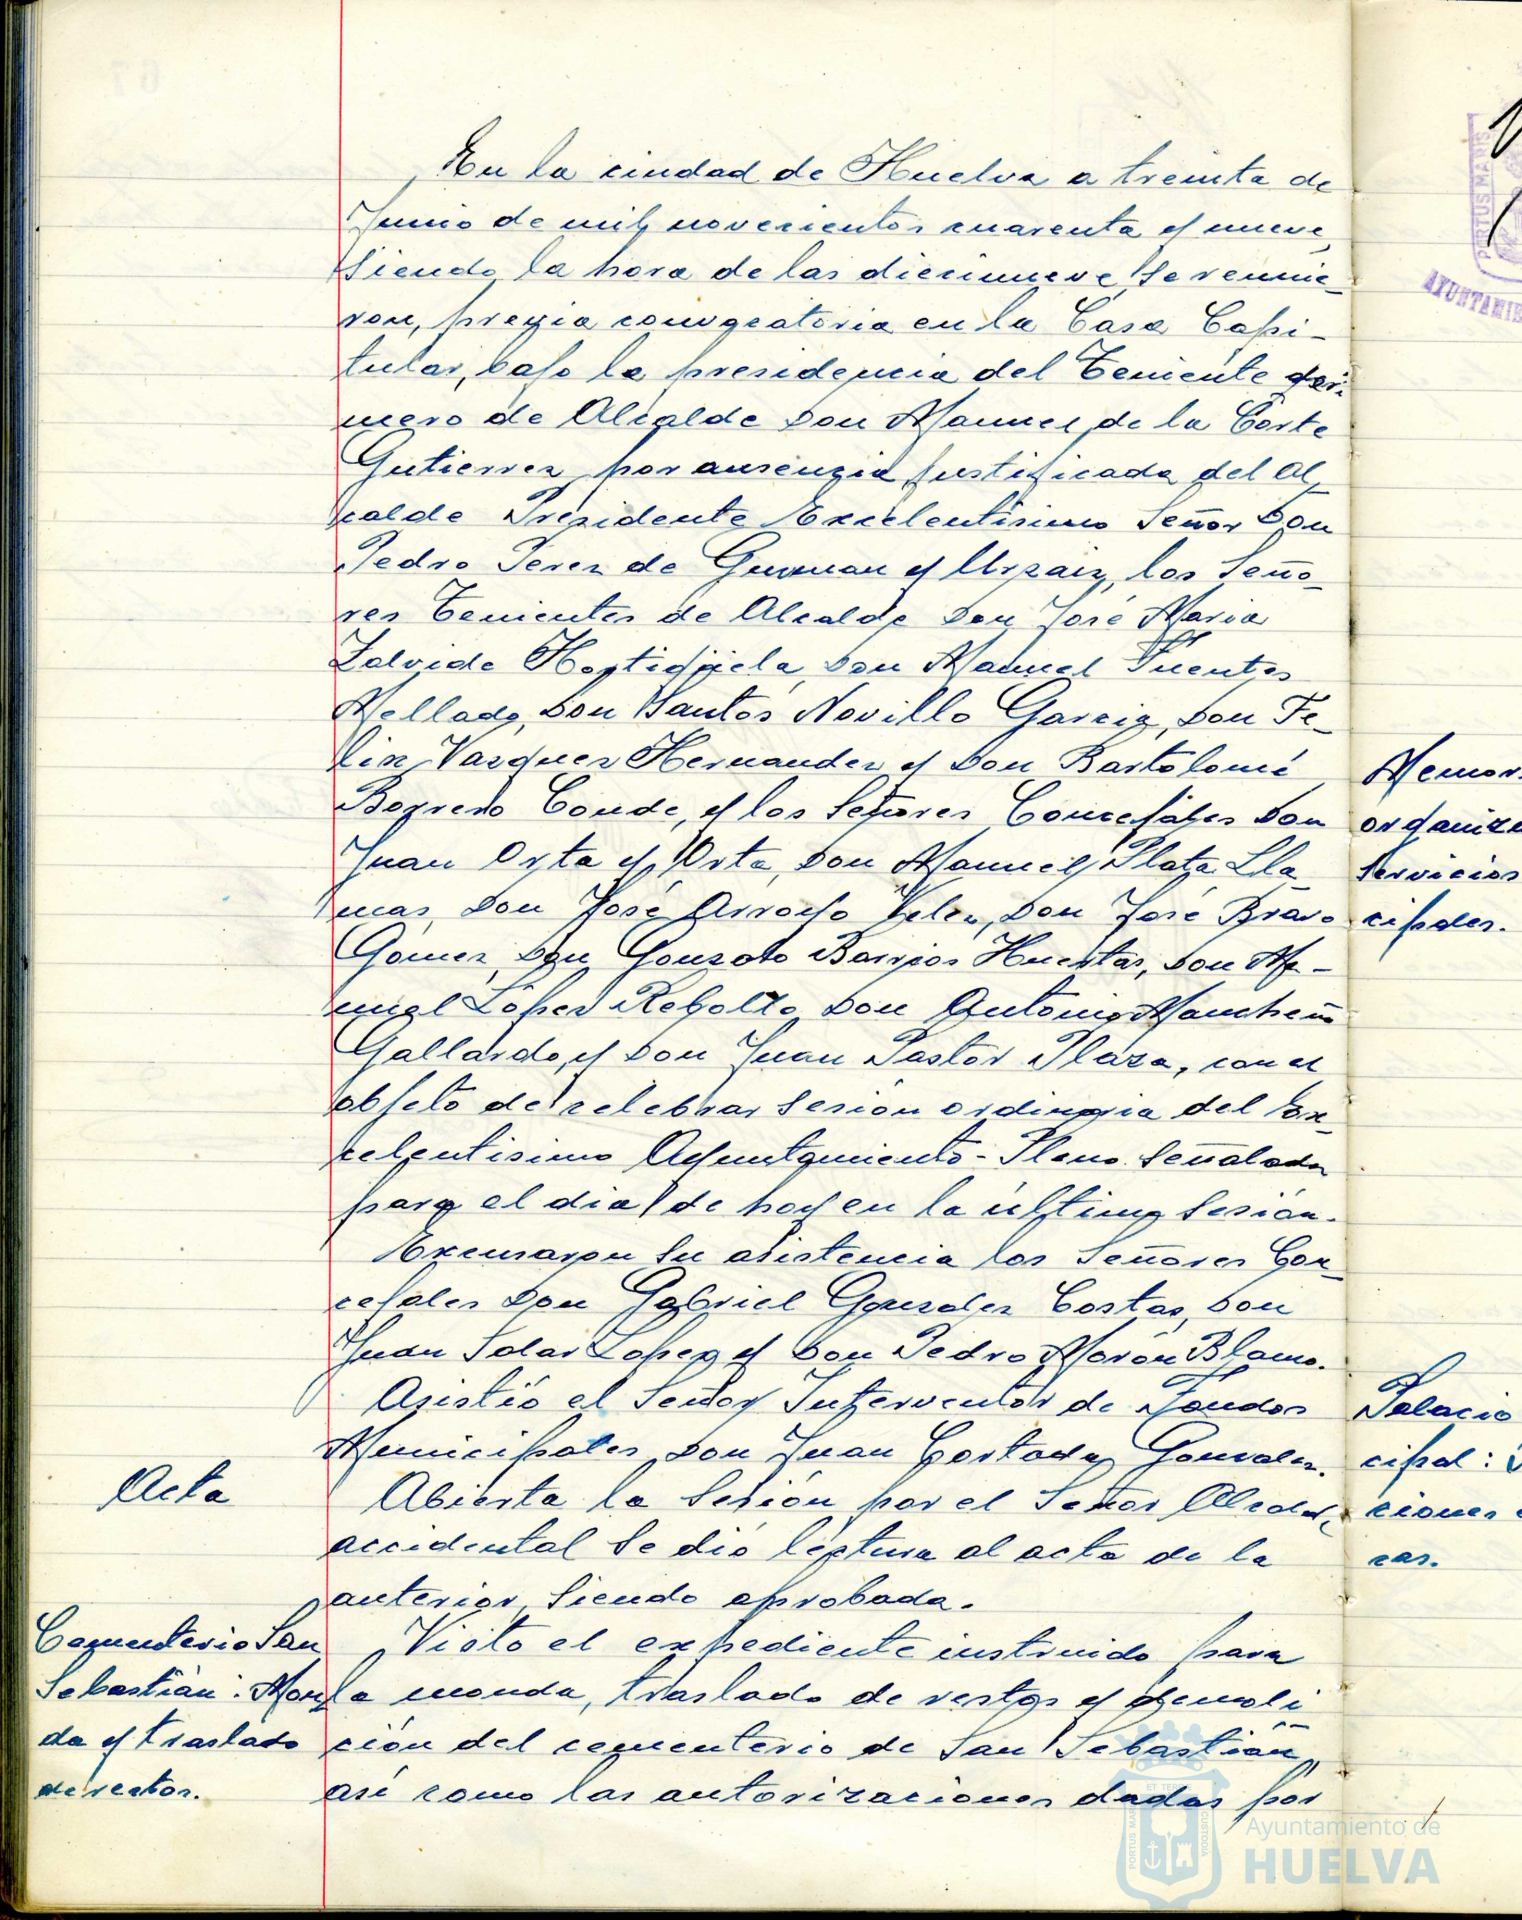 En la ciudad de Huelva a treinta de
Junio de mil novecientos cuarenta y nueve,
siendo la hora de las diecinueve se reunie-
ron, previa convocatoria en la Casa Capi-
tular, bajo la presidencia del Teniente pri-
mero de Alcalde Don Manuel de la Corte
Gutierrez por ausencia justificada del Al-
calde Presidente Excelentísimo Señor Don
Pedro Perez de Guzman y Urzaiz, los Seño-
res Tenientes de Alcalde Don José Maria
Zalvide Hortigüela, Don Manuel Fuentes
Mellado, Don Santos Novillo Garcia, Don Fe-
lix Vazquez Hernandez y Don Bartolomé
Borrero Conde, y los Señores Concejales Don
Juan Orta y Orta, Don Manuel Plata Lla-
mas, Don José Arroyo Velez, Don José Bravo
Gómez, Don Gonzalo Barrios Huertas, Don Ma-
nuel López Rebollo, Don Antonio Mancheño
Gallardo, y Don Juan Pastor Plaza, con el
objeto de celebrar sesión ordinaria del Ex-
celentisimo Ayuntamiento-Pleno señalada
para el dia de hoy en la última sesión.
Excusaron su asistencia los Señores Con-
cejales Don Gabriel Gonzalez Costas, Don
Juan Solar Lopez y Don Pedro Morón Blanco.
Asistió el Señor Interventor de Fondos
Municipales Don Juan Cortada Gonzalez.
Acta
Abierta la sesión por el Señor Alcalde
accidental se dió lectura al acta de la
anterior, siendo aprobada.
Cementerio San
Sebastián: Mon-
da y traslado
de restos.
Visto el expediente instruido para
la monda, traslado de restos y demoli-
ción del cementerio de San Sebastián,
así como las autorizaciones dadas por
Memor
organiza
servicios
cipales.
Palacio
cipal:
ciones
cas.
PORTUS MARIS
AYUNTAMIE
Ayuntamiento de
HUELVA